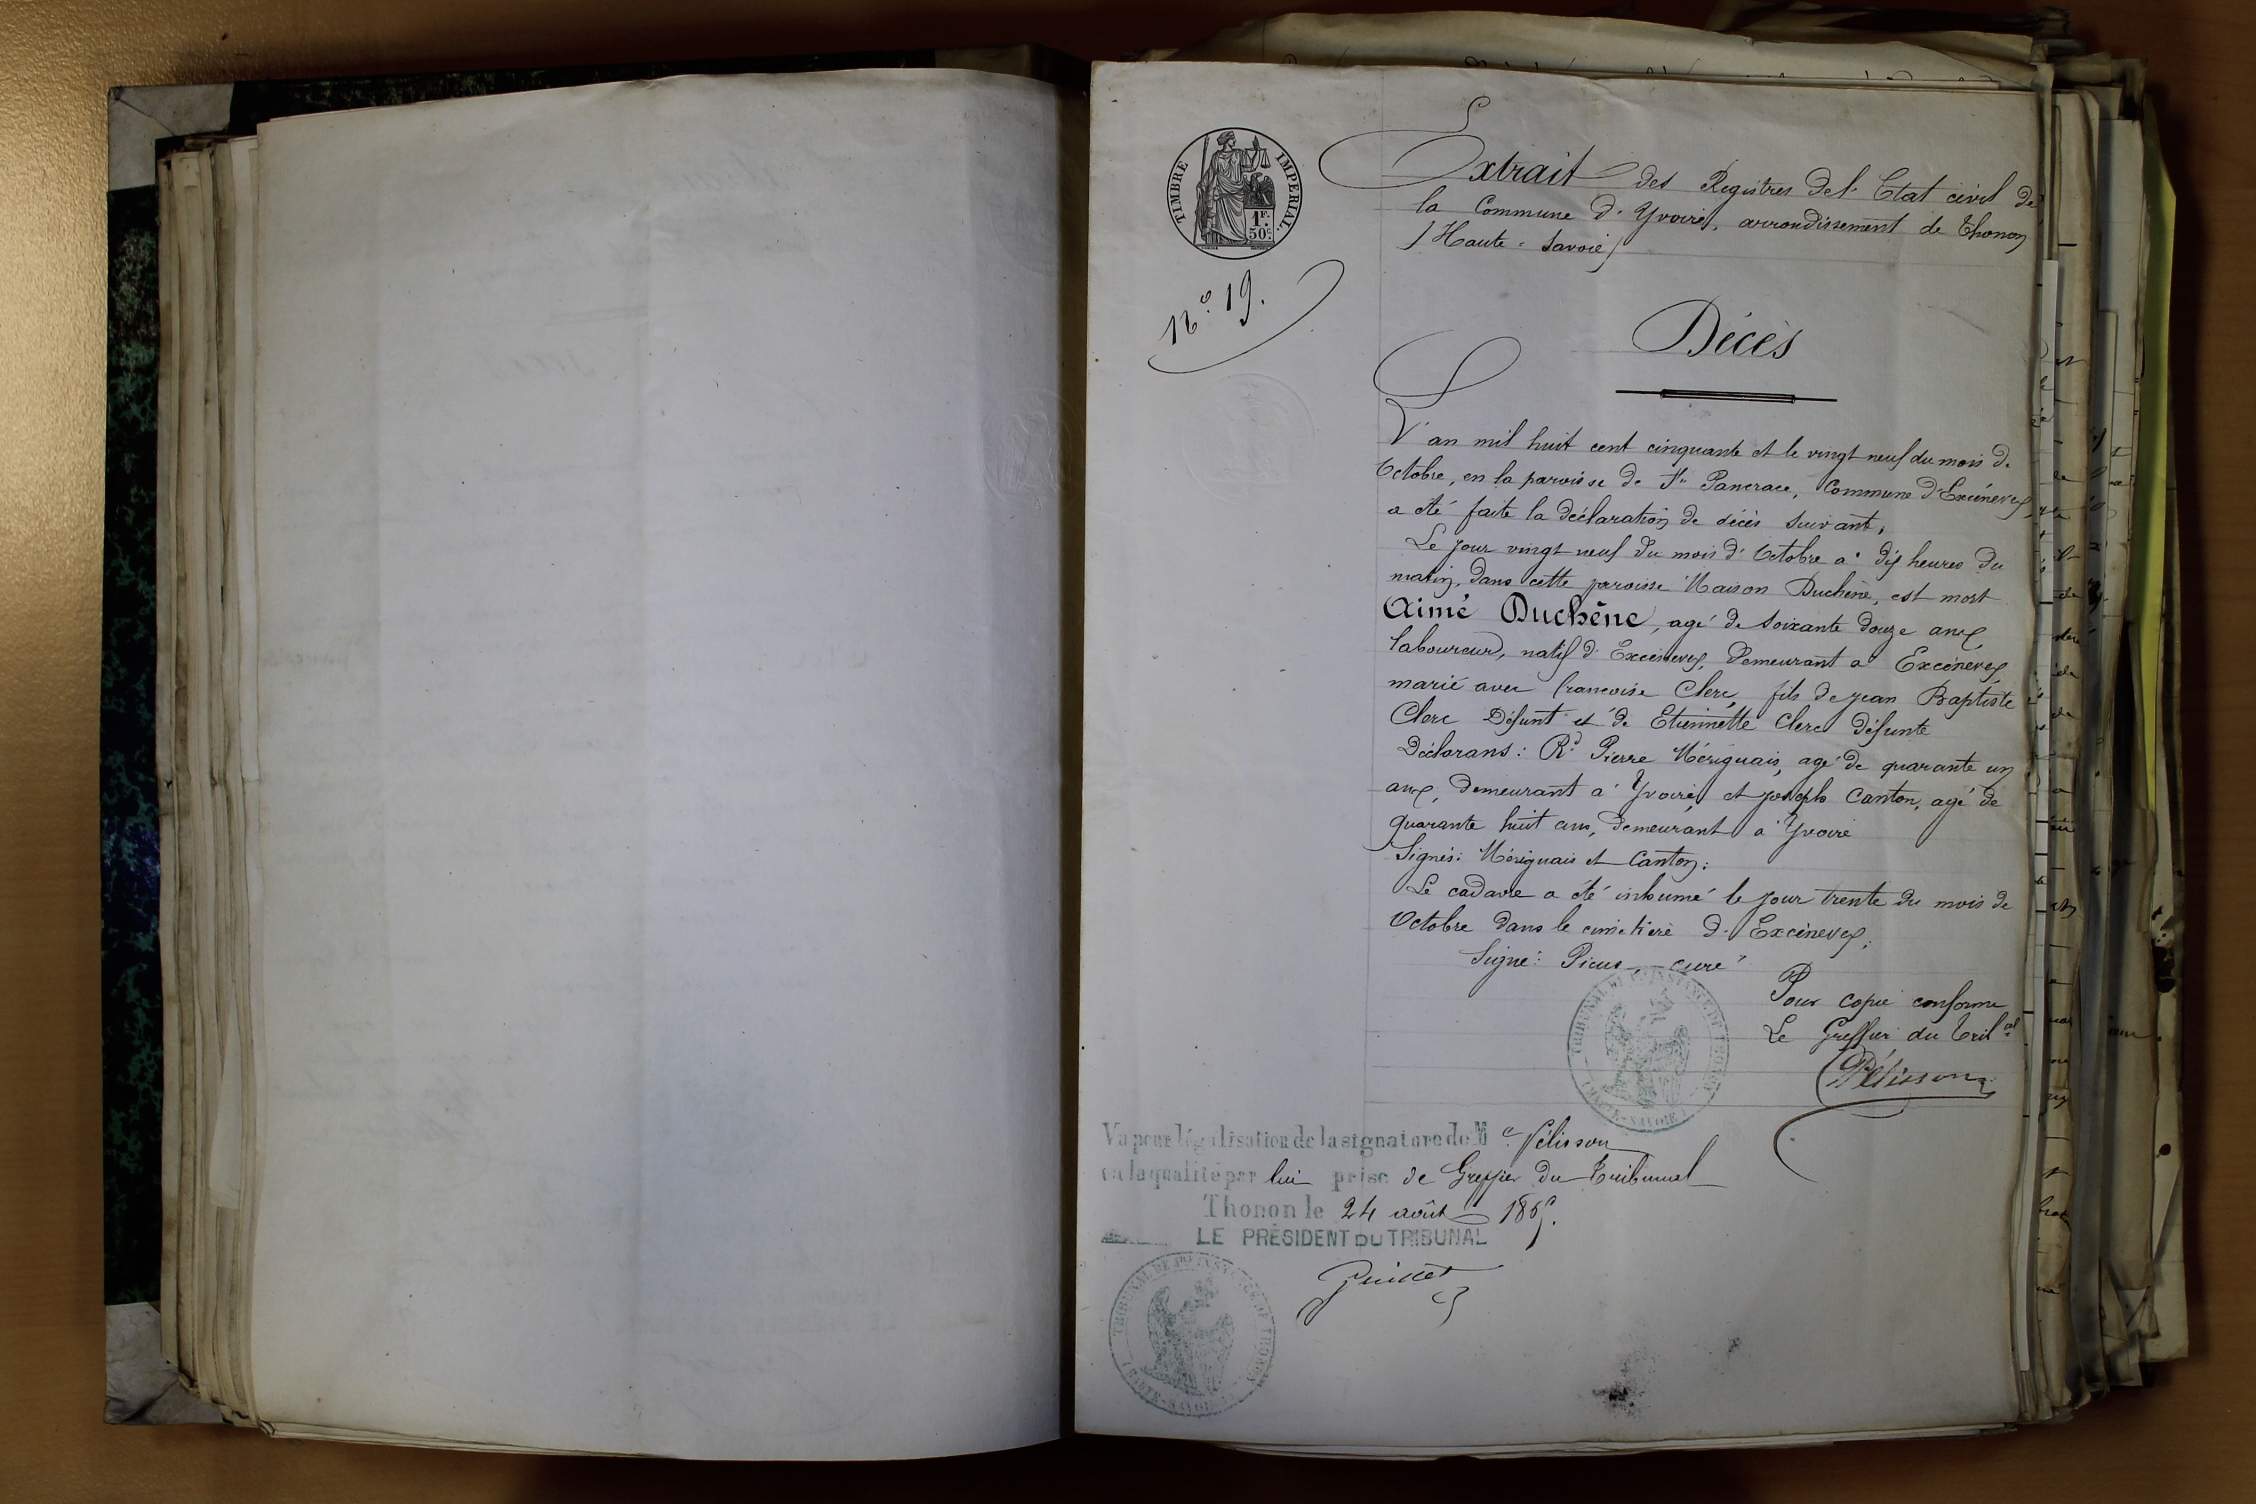 TIMBRE IMPÉRIAL
1F.
50c.
Extrait des Registres de l'Etat civil de
la Commune d'Yvoire, arrondissement de Thonon
(Haute-Savoie)
No. 19.
Décès
L'an mil huit cent cinquante et le vingt neuf du mois de
Octobre, en la paroisse de St. Pancrace, Commune d'Excénevex,
a été faite la déclaration de décès suivant,
Le jour vingt neuf du mois d'Octobre a dix heures du
matin, dans cette paroisse Maison Duchêne, est mort
Aimé Duchêne, agé de soixante douze ans,
laboureur, natif d'Excénevex, demeurant a Excénevex,
marié avec francoise Clerc, fils de jean Baptiste
Clerc défunt et de Etiennette Clerc défunte
Déclarans: Rd. Pierre Mériguais, agé de quarante un
ans, demeurant a Yvoire, et joseph Canton, agé de
quarante huit ans, demeurant a Yvoire
Signés: Mériguais et Canton.
Le cadavre a été inhumé le jour trente du mois de
Octobre dans le cimetière d'Excénevex.
Signé: Picus, curé
Pour copie conforme
Le Greffier du Tribal
Pélisson
TRIBUNAL DE 1re INSTANCE DE THONON
(HAUTE-SAVOIE)
Vu pour légalisation de la signature de Me. Pélisson
en la qualité par lui prise de Greffier du Tribunal
Thonon le 24 août 1865.
LE PRÉSIDENT DU TRIBUNAL
TRIBUNAL DE 1re INSTANCE DE THONON
(HAUTE-SAVOIE)